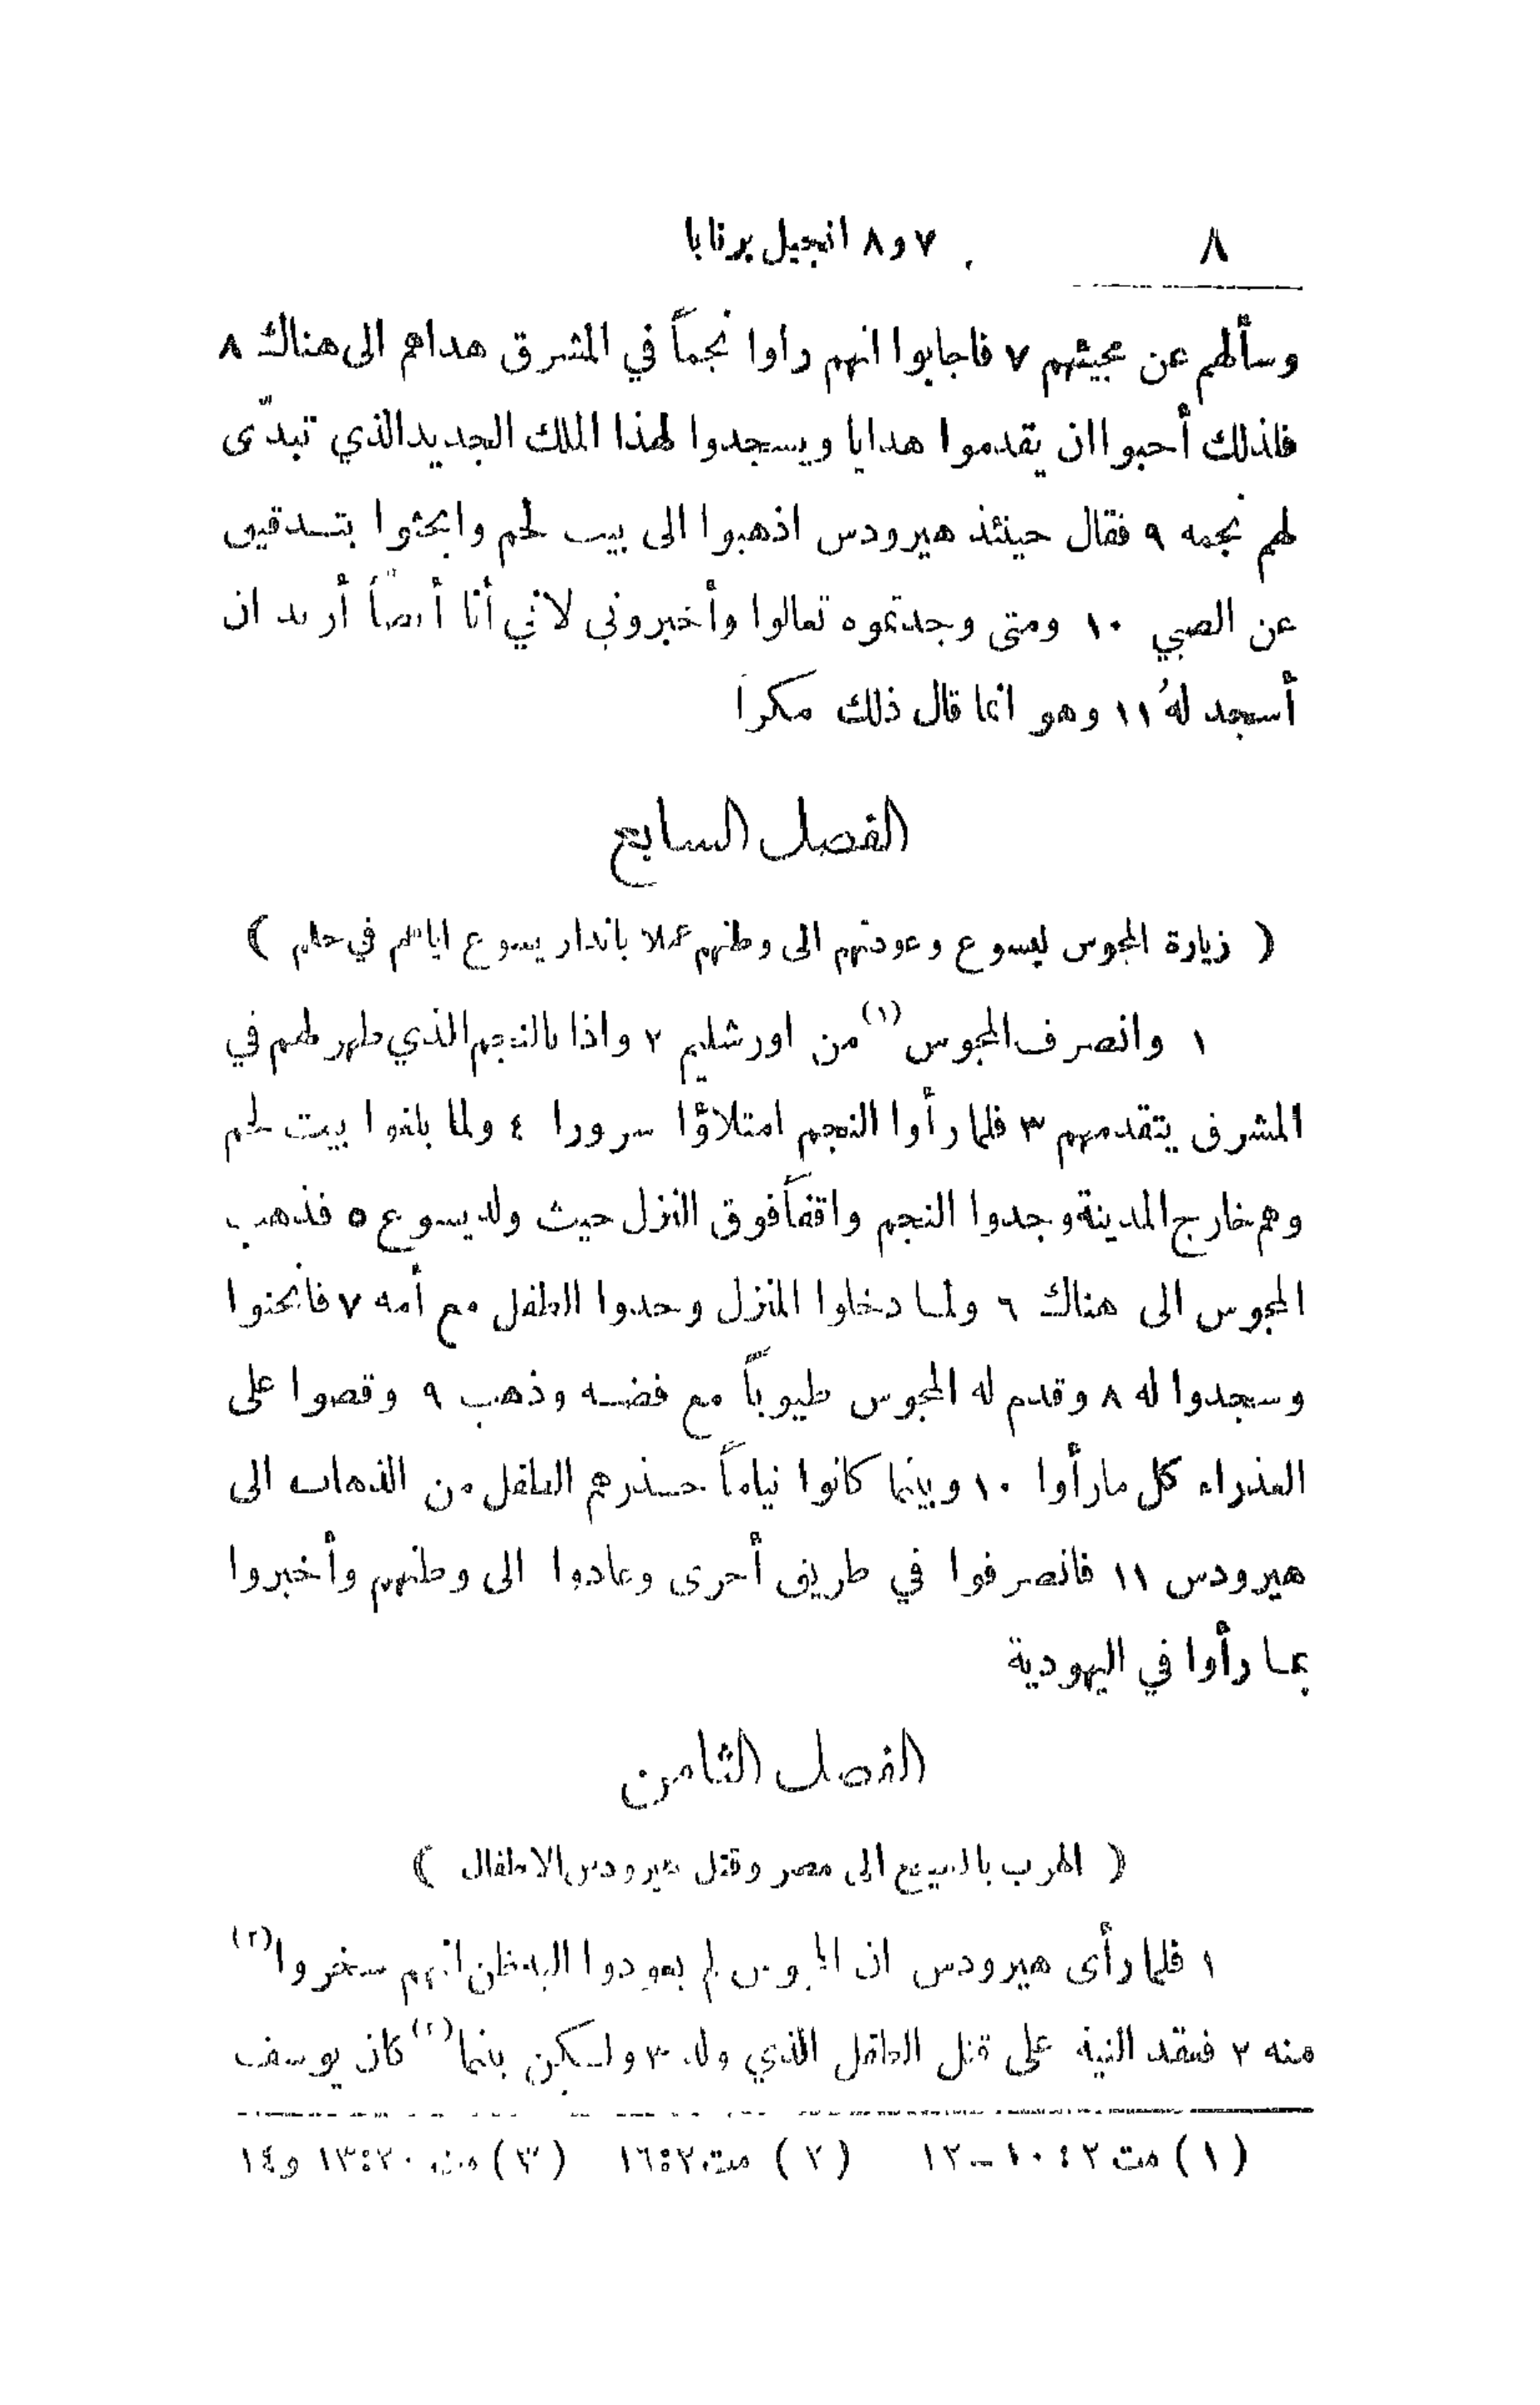 ٨
٧ و٨ انجيل برنابا
وسألهم عن مجيئهم ٧ فاجابوا انهم راوا نجماً في المشرق هداهم الى هناك ٨
فلذلك أحبوا ان يقدموا هدايا ويسجدوا لهذا الملك الجديد الذي تبدّى
لهم نجمه ٩ فقال حينئذ هيرودس اذهبوا الى بيت لحم وابحثوا بتدقيق
عن الصبي ١٠ ومتى وجدتموه تعالوا وأخبروني لاني أنا أيضاً أريد ان
أسجد لهُ ١١ وهو انما قال ذلك مكراً
الفصل السابع
( زيارة المجوس ليسوع وعودتهم الى وطنهم عملا بانذار يسوع اياهم في حلم )
١ وانصرف المجوس (١) من اورشليم ٢ واذا بالنجم الذي ظهر لهم في
المشرق يتقدمهم ٣ فلما رأوا النجم امتلاؤا سرورا ٤ ولما بلغوا بيت لحم
وهم خارج المدينة وجدوا النجم واقفاً فوق النزل حيث ولد يسوع ٥ فذهب
المجوس الى هناك ٦ ولما دخلوا المنزل وجدوا الطفل مع أمه ٧ فانحنوا
وسجدوا له ٨ وقدم له المجوس طيوباً مع فضة وذهب ٩ وقصوا على
العذراء كل ما رأوا ١٠ وبينما كانوا نياماً حذرهم الطفل من الذهاب الى
هيرودس ١١ فانصرفوا في طريق أخرى وعادوا الى وطنهم وأخبروا
بما رأوا في اليهودية
الفصل الثامن
( الهرب بالمسيح الى مصر وقتل هيرودس الاطفال )
١ فلما رأى هيرودس ان المجوس لم يعودوا اليه ظن انهم سخروا (٢)
منه ٢ فعقد النية على قتل الطفل الذي ولد ٣ ولكن بينما (٣) كان يوسف
(١) مت ٢ : ١٠ – ١٢ (٢) مت ٢ : ١٦ (٣) مت ٢ : ١٣ و١٤